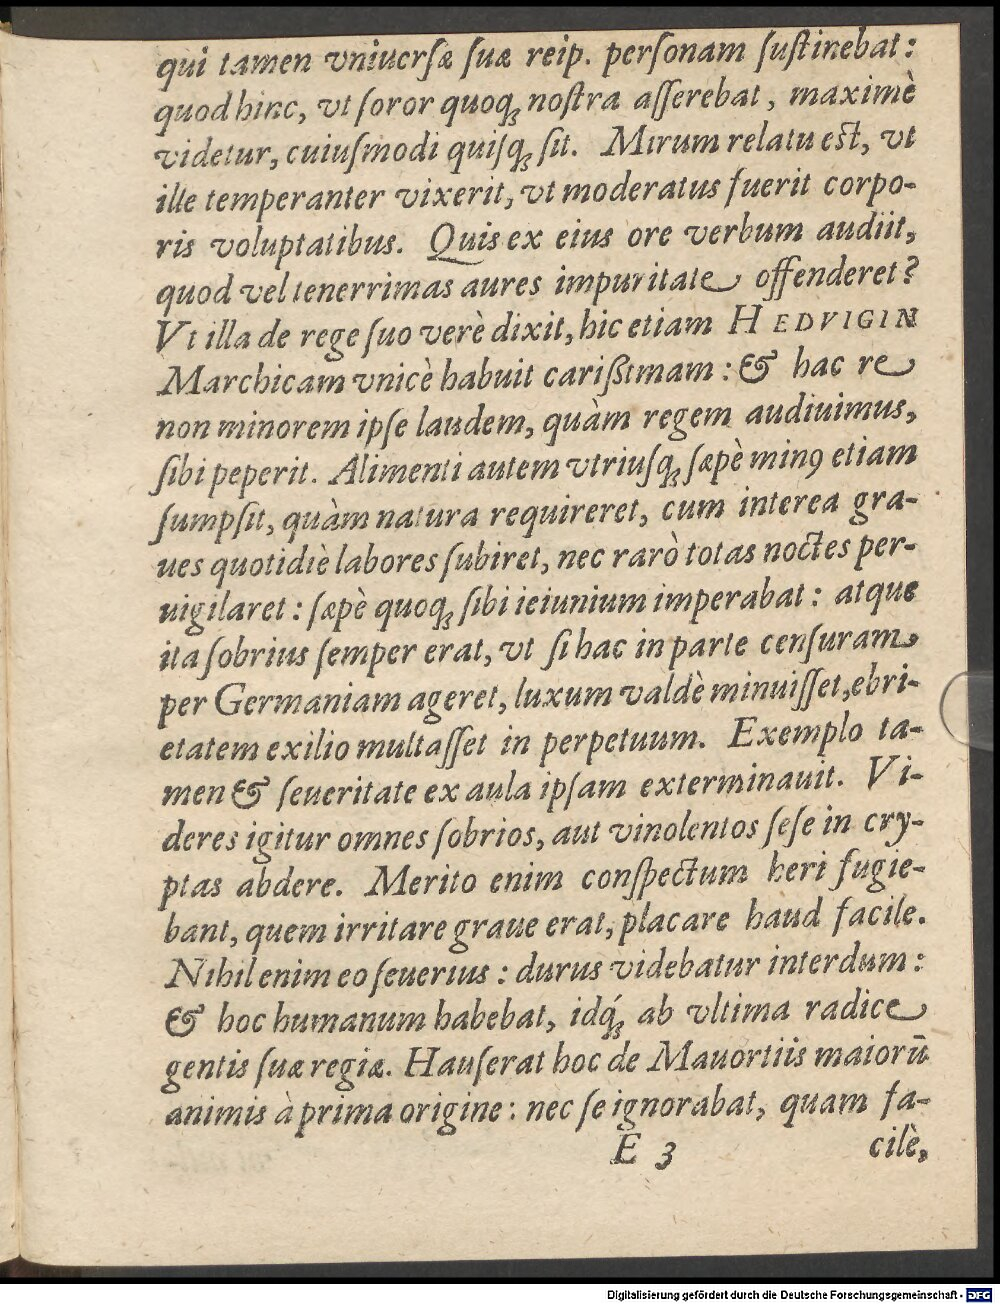 qui tamen vniuerſæ ſuæ reip. perſonam ſuſtinebat:
quod hinc, vt ſoror quoq; noſtra aſſerebat, maximè
videtur, cuiuſmodi quiſq; ſit. Mirum relatu eſt, vt
ille temperanter vixerit, vt moderatus fuerit corpo-
ris voluptatibus. Quis ex eius ore verbum audiit,
quod vel tenerrimas aures impuritate offenderet?
Vt illa de rege ſuo verè dixit, hic etiam HEDVIGIN
Marchicam vnicè habuit carißimam: & hac re
non minorem ipſe laudem, quàm regem audiuimus,
ſibi peperit. Alimenti autem vtriuſq; ſæpè minꝰ etiam
ſumpſit, quàm natura requireret, cum interea gra-
ues quotidiè labores ſubiret, nec rarò totas noctes per-
uigilaret: ſæpè quoq; ſibi ieiunium imperabat: atque
ita ſobrius ſemper erat, vt ſi hac in parte cenſuram
per Germaniam ageret, luxum valdè minuiſſet, ebri-
etatem exilio multaſſet in perpetuum. Exemplo ta-
men & ſeueritate ex aula ipſam exterminauit. Vi-
deres igitur omnes ſobrios, aut vinolentos ſeſe in cry-
ptas abdere. Merito enim conſpectum heri fugie-
bant, quem irritare graue erat, placare haud facile.
Nihil enim eo ſeuerius: durus videbatur interdum:
& hoc humanum habebat, idq́; ab vltima radice
gentis ſuæ regiæ. Hauſerat hoc de Mauortiis maiorū
animis à prima origine: nec ſe ignorabat, quam fa-
E 3 cilè,
Digitalisierung gefördert durch die Deutsche Forschungsgemeinschaft - DFG